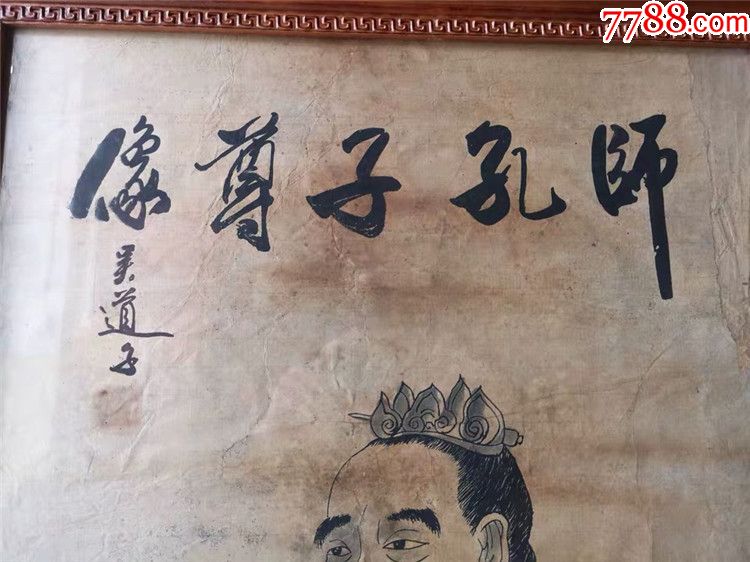 7788.com
師孔子尊像
吴道子